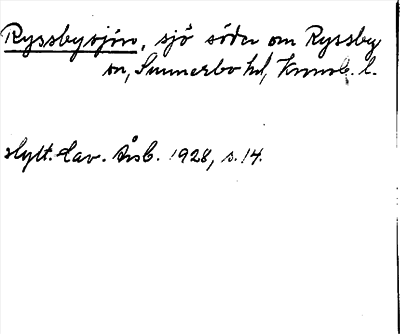 Ryssbysjön, sjö söder om Ryssby
sn, Sunnerbo hd, Kronob. l.
Hylt.-Cav. Årsb. 1928, s. 14.